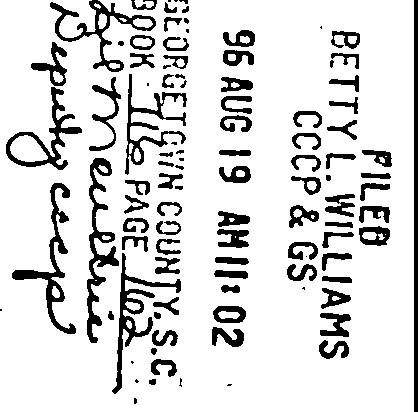 FILED
BETTY L. WILLIAMS
CCCP & GS
96 AUG 19 AM 11:02
GEORGETOWN COUNTY, S.C.
BOOK 716 PAGE 162
Deputy cccp